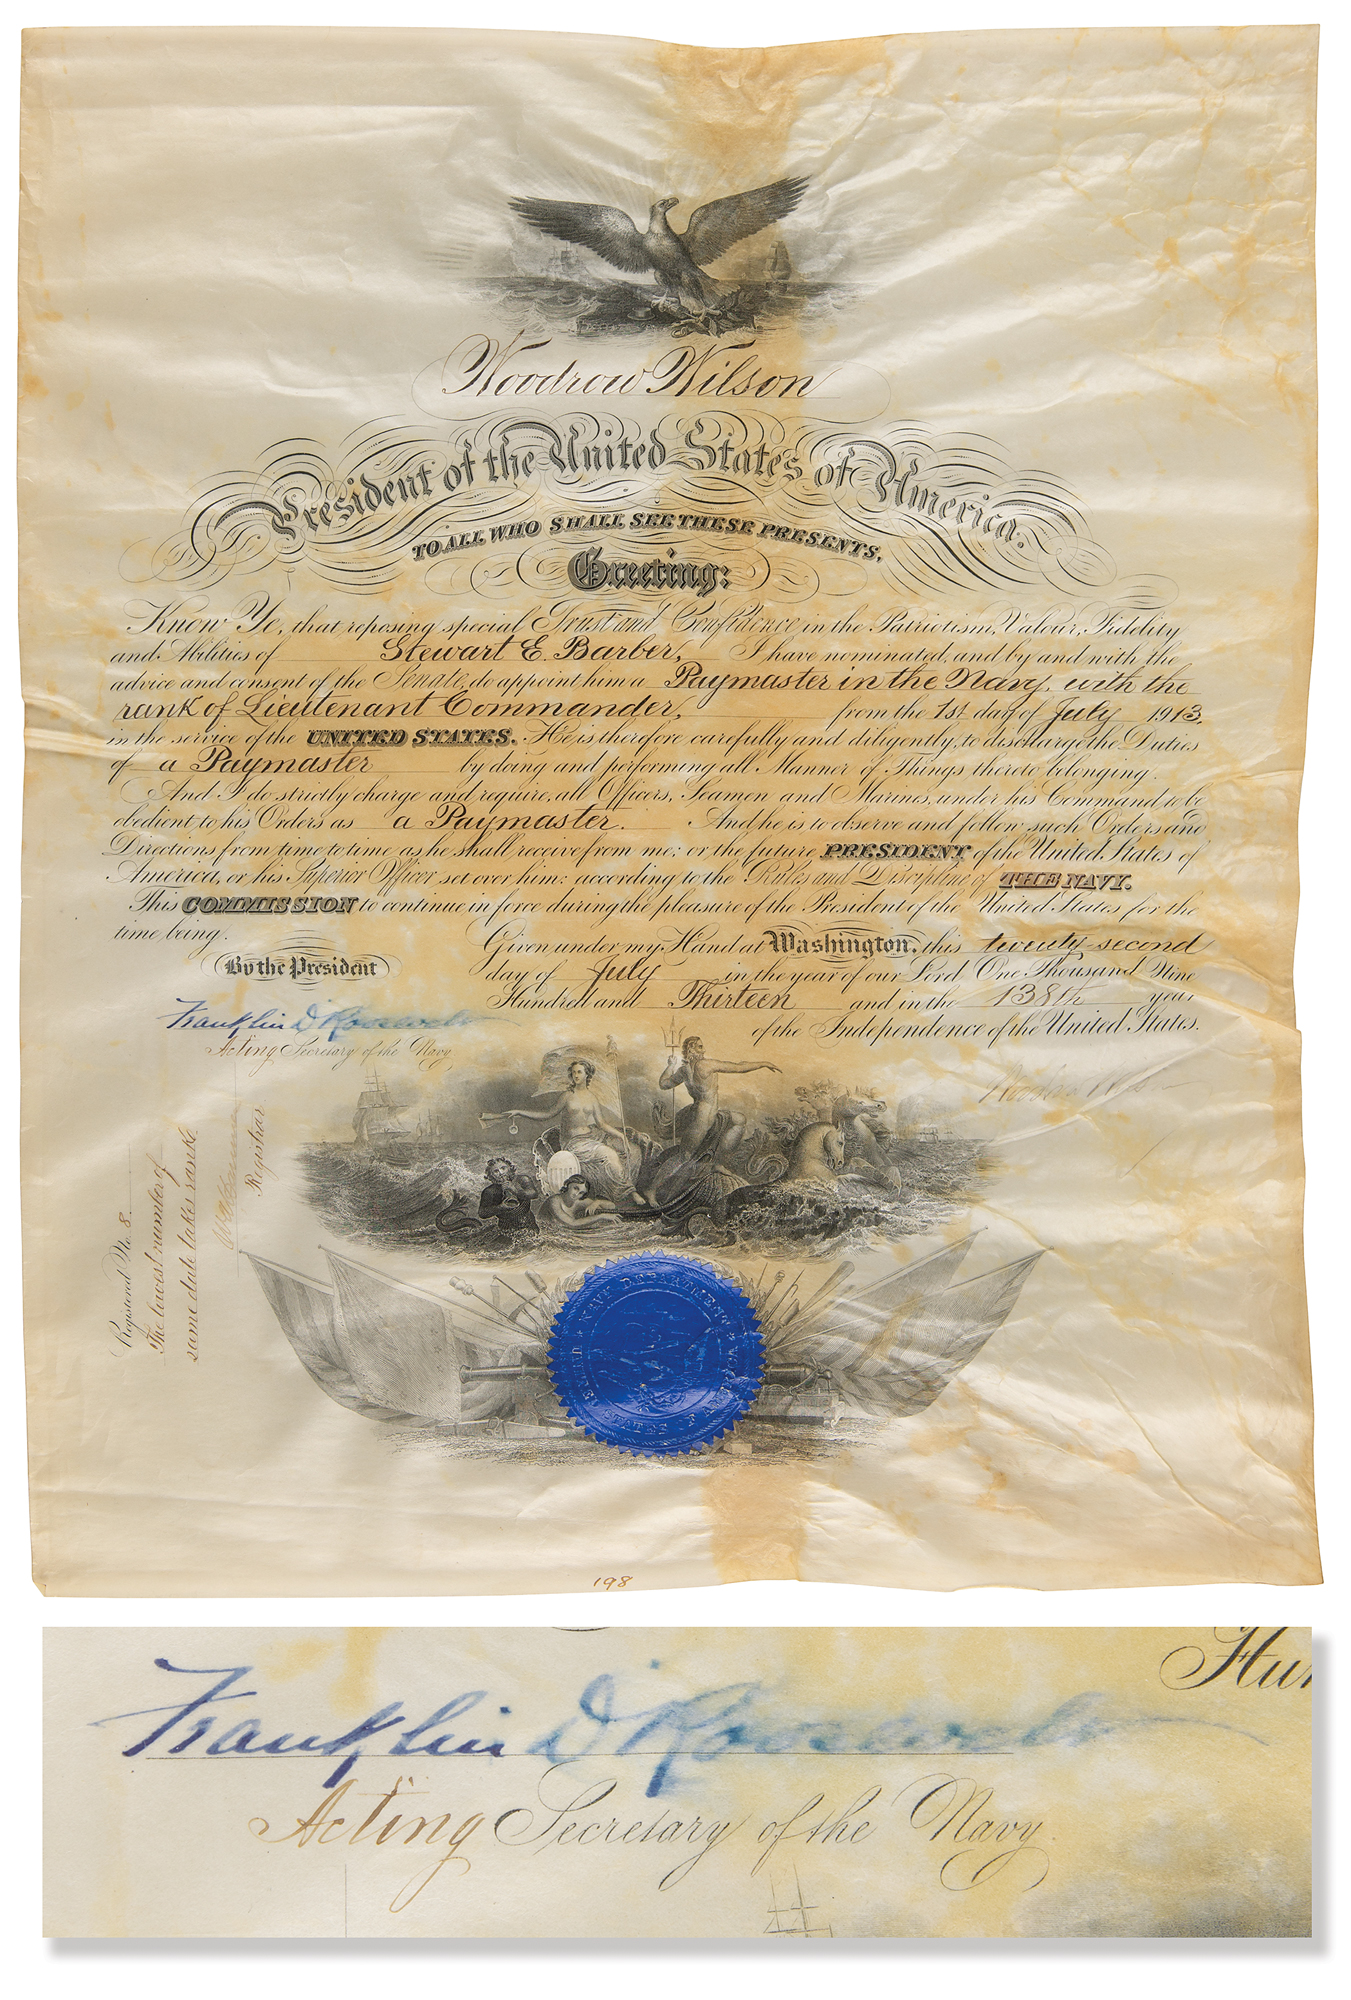 Woodrow Wilson
President of the United States of America.
TO ALL WHO SHALL SEE THESE PRESENTS,
Greeting:
Know Ye, that reposing special Trust and Confidence in the Patriotism, Valour, Fidelity
and Abilities of Stewart E. Barber, I have nominated, and by and with the
advice and consent of the Senate, do appoint him a Paymaster in the Navy, with the
rank of Lieutenant Commander, from the 1st day of July 1913,
in the service of the UNITED STATES. He is therefore carefully and diligently, to discharge the Duties
of a Paymaster by doing and performing all Manner of Things thereto belonging.
And I do strictly charge and require, all Officers, Seamen and Marines, under his Command to be
obedient to his Orders as a Paymaster. And he is to observe and follow such Orders and
Directions from time to time as he shall receive from me; or the future PRESIDENT of the United States of
America, or his Superior Officer set over him: according to the Rules and Discipline of THE NAVY.
This COMMISSION to continue in force during the pleasure of the President of the United States for the
time being.
Given under my Hand at Washington, this twenty-second
day of July in the year of our Lord One Thousand Nine
Hundred and Thirteen and in the 138th year
of the Independence of the United States.
By the President
Franklin D Roosevelt
Acting Secretary of the Navy
Woodrow Wilson
Registrar
Registered No. 8.
The lowest number of
same date takes rank.
NAVY DEPARTMENT
UNITED STATES OF AMERICA
198
Hun
Franklin D Roosevelt
Acting Secretary of the Navy